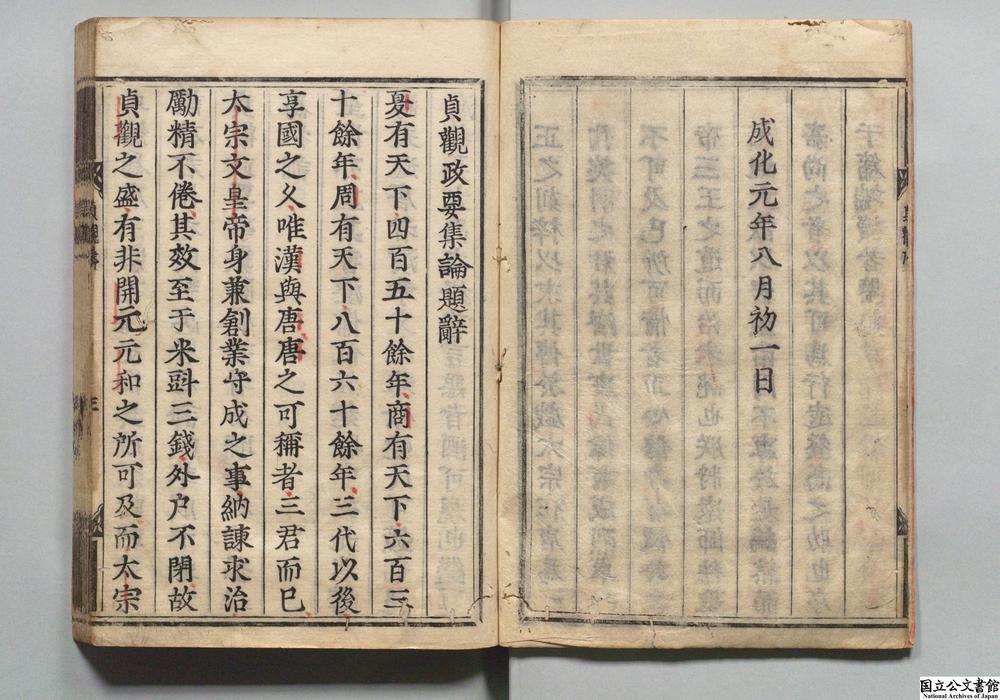 成化元年八月初一日
貞觀政要集論題辭
夏有天下四百五十餘年商有天下六百三
十餘年周有天下八百六十餘年三代以後
享國之久唯漢與唐唐之可稱者三君而已
太宗文皇帝身兼創業守成之事納諫求治
勵精不倦其效至于米斗三錢外户不閉故
貞觀之盛有非開元元和之所可及而太宗
国立公文書館
National Archives of Japan